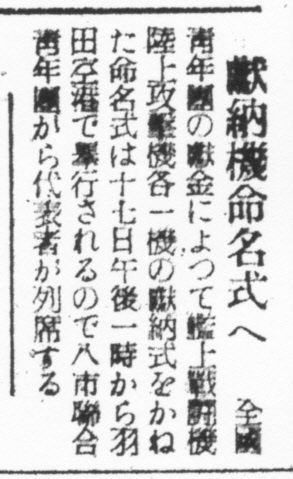 獻納機命名式へ
全國
青年團の獻金によつて艦上戰鬪機
陸上攻擊機各一機の獻納式をかね
た命名式は十七日午後一時から羽
田空港で擧行されるので八市聯合
青年團から代表者が列席する